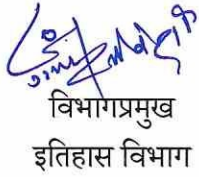 विभागप्रमुख
इतिहास विभाग